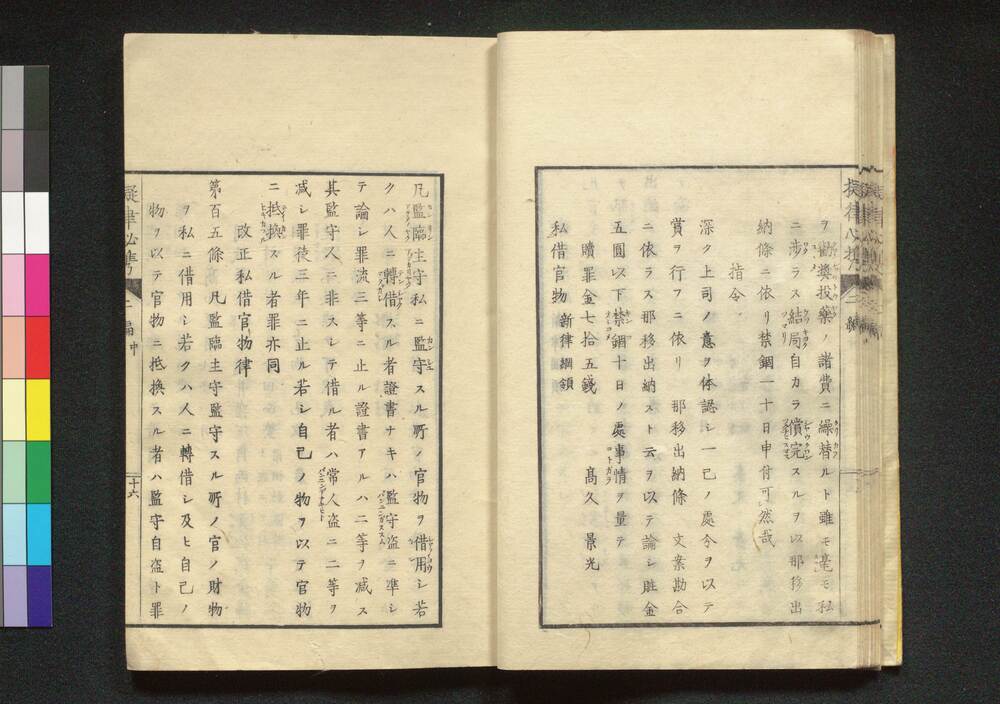 ヲ勸奬投藥ノ諸費ニ繰替ルト雖モ毫モ私
ニ渉ラス結局自カラ償完スルヲ以那移出
納條ニ依リ禁錮一十日申付可然哉
指令
深ク上司ノ意ヲ体認シ一己ノ處令ヲ以テ
賞ヲ行フニ依リ那移出納條文案勘合
ニ依ラス那移出納スト云ヲ以テ論シ賍金
五圓以下禁錮十日ノ處事情ヲ量テ
贖罪金七拾五錢 髙久景光
私借官物 新律綱領
凡監臨主守私ニ監守スル所ノ官物ヲ借用シ若
クハ人ニ轉借スル者證書ナキハ監守盗ニ準シ
テ論シ罪流三等ニ止ル證書アルハ二等ヲ減ス
其監守人ニ非スシテ借ル者ハ常人盗ニ二等ヲ
减シ罪徒三年ニ止ル若シ自己ノ物ヲ以テ官物
ニ抵換スル者罪亦同
改正私借官物律
第百五條 凡監臨主守監守スル所ノ官ノ財物
ヲ私ニ借用シ若クハ人ニ轉借シ及ヒ自己ノ
物ヲ以テ官物ニ抵換スル者ハ監守自盗ト罪
擬律必携
二十六